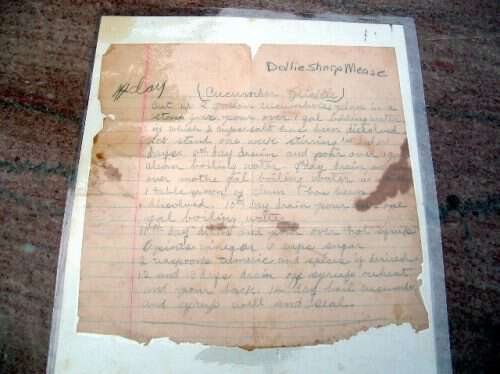 Dollie Sharp Mease
# day
(Cucumber Pickle)
cut up 2 cucumbers place in a
stone jar pour over 1 gal boiling water
in which 2 cups salt has been disolved
let stand one week stirring
days 8th day drain and pour over 1 gal
boiling water 9th day drain
over another gal boiling water in
1 table spoon of alum has been
disolved 10th day drain pour one
gal boiling water
11th day drain and pour over hot syrup
6 pints vinegar 6 cups sugar
2 teaspoons tumeric and spices if desired
12 and 13 days drain off syrup reheat
and pour back 14 day heat
and syrup and seal